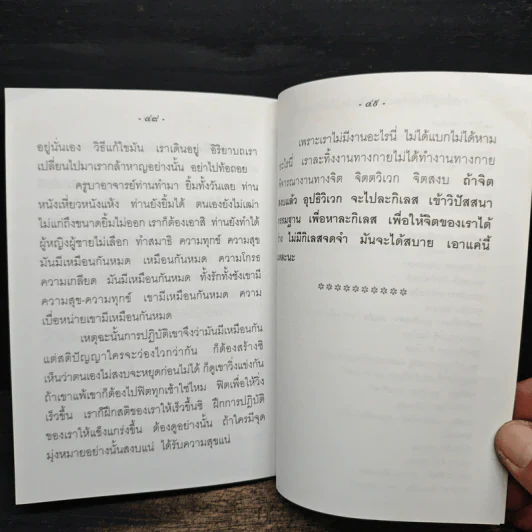 - ๔๘ -
อยู่นั่นเอง วิธีแก้ไขมัน เราเดินอยู่ อิริยาบถเรา
เปลี่ยนไปมาเรากล้าหาญอย่างนั้น อย่าไปท้อถอย
ครูบาอาจารย์ท่านทำมา ยิ้มทั้งวันเลย ท่าน
หนังเหี่ยวหนังแห้ง ท่านยังยิ้มได้ ตนเองยังไม่เฒ่า
ไม่แก่ถึงขนาดยิ้มไม่ออก เราก็ต้องเอาสิ ท่านยังทำได้
ผู้หญิงผู้ชายไม่เลือก ทำสมาธิ ความทุกข์ ความสุข
มันมีเหมือนกันหมด เหมือนกันหมด ความโกรธ
ความเกลียด มันมีเหมือนกันหมด ทั้งรักทั้งชังเขามี
ความสุข-ความทุกข์ เขามีเหมือนกันหมด ความ
เบื่อหน่ายเขามีเหมือนกันหมด
เหตุฉะนั้นการปฏิบัติเขาจึงว่ามันมีเหมือนกัน
แต่สติปัญญาใครจะว่องไวกว่ากัน ก็ต้องสร้างซิ
เห็นว่าตนเองไม่สงบจะหยุดก่อนไม่ได้ ก็ดูเขาวิ่งแข่งกัน
ถ้าเขาแพ้เขาก็ต้องไปฟิตทุกเช้าใช่ไหม ฟิตเพื่อให้วิ่ง
เร็วขึ้น เราก็ฝึกสติของเราให้เร็วขึ้นซิ ฝึกการปฏิบัติ
ของเราให้แข็งแกร่งขึ้น ต้องดูอย่างนั้น ถ้าใครมีจุด
มุ่งหมายอย่างนั้นสงบแน่ ได้รับความสุขแน่
- ๔๙ -
เพราะเราไม่มีงานอะไรนี่ ไม่ได้แบกไม่ได้หาม
อะไรนี่ เราละทิ้งงานทางกายไม่ได้ทำงานทางกาย
พิจารณางานทางจิต จิตตวิเวก จิตสงบ ถ้าจิต
สงบแล้ว อุปธิวิเวก จะไปละกิเลส เข้าวิปัสสนา
กรรมฐาน เพื่อหาละกิเลส เพื่อให้จิตของเราได้
ไม่มีกิเลสจดจำ มันจะได้สบาย เอาแค่นี้
แหละนะ
**********